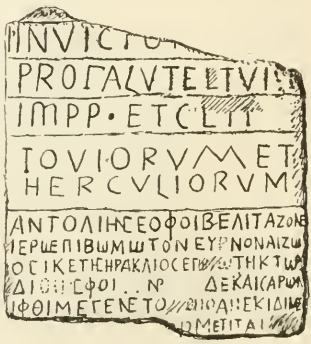 INVICTO
PROSALVTEETVI
IMPP·ETC
IOVIORVM ET
HERCVLIORVM
ΑΝΤΟΛΙΗCΕΟΦΟΙΒΕΛΙΤΑΖΟΝΕ
ΙΕΡѠΕΠΙΒѠΜѠΤΟΝΕΥΡΝΟΝΑΙΖѠ
ΟCΙΚΕΤΙCΗΡΑΚΛΙΟCΕΓ ΤΗΚΤѠΡ
ΔΙΟ CΕΦΟΙ..Ν ΔΕΚΑΙCΑΡѠΝ
ΙΦΘΙΜΕΓΕΝΕΤΟ
ΜΕΤΙΤΑΙ